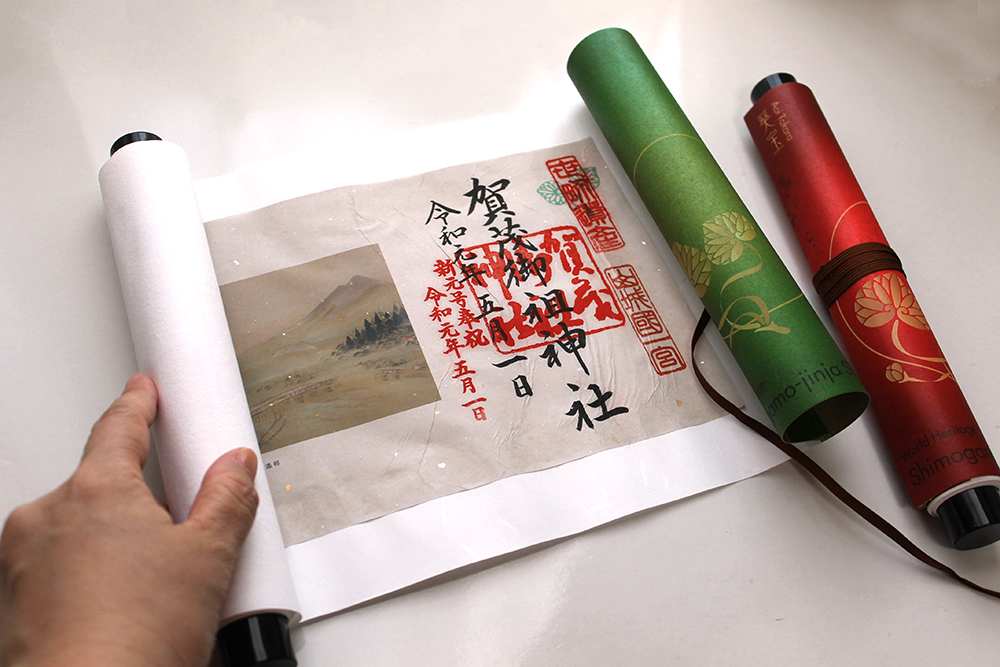 世界遺産
山城國一宮
賀茂御祖神社
令和元年五月一日
新元号奉祝
令和元年五月一日
amo-jinja S
World Heritage
Shimoga